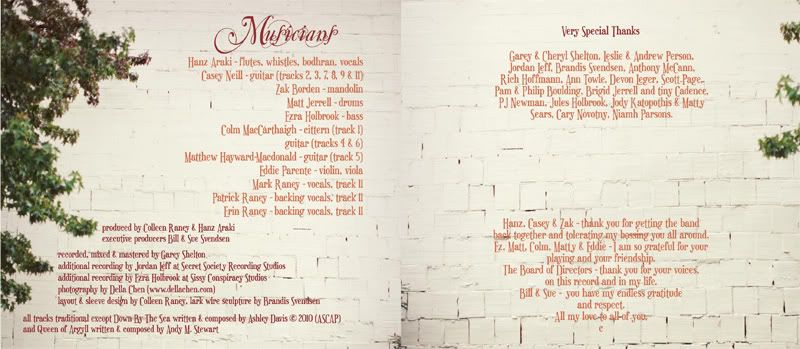 Musicians
Hanz Araki - flutes, whistles, bodhran, vocals
Casey Neill - guitar (tracks 2, 3, 7, 8, 9 & 11)
Zak Borden - mandolin
Matt Jerrell - drums
Ezra Holbrook - bass
Colm MacCárthaigh - cittern (track 1)
guitar (tracks 4 & 6)
Matthew Hayward-Macdonald - guitar (track 5)
Eddie Parente - violin, viola
Mark Raney - vocals, track 11
Patrick Raney - backing vocals, track 11
Erin Raney - backing vocals, track 11
produced by Colleen Raney & Hanz Araki
executive producers Bill & Sue Svendsen
recorded, mixed & mastered by Garey Shelton
additional recording by Jordan Leff at Secret Society Recording Studios
additional recording by Ezra Holbrook at Sissy Conspiracy Studios
photography by Della Chen (www.dellachen.com)
layout & sleeve design by Colleen Raney, lark wire sculpture by Brandis Svendsen
all tracks traditional except Down By The Sea written & composed by Ashley Davis © 2010 (ASCAP)
and Queen of Argyll written & composed by Andy M. Stewart
Very Special Thanks
Garey & Cheryl Shelton, Leslie & Andrew Person,
Jordan Leff, Brandis Svendsen, Anthony McCann,
Rich Hoffmann, Ann Towle, Devon Leger, Scott Page,
Pam & Philip Boulding, Brigid Jerrell and tiny Cadence,
PJ Newman, Jules Holbrook, Jody Katopothis & Matty
Sears, Cary Novotny, Niamh Parsons.
Hanz, Casey & Zak - thank you for getting the band
back together and tolerating my bossing you all around.
Ez, Matt, Colm, Matty & Eddie - I am so grateful for your
playing and your friendship.
The Board of Directors - thank you for your voices,
on this record and in my life.
Bill & Sue - you have my endless gratitude
and respect.
All my love to all of you,
c